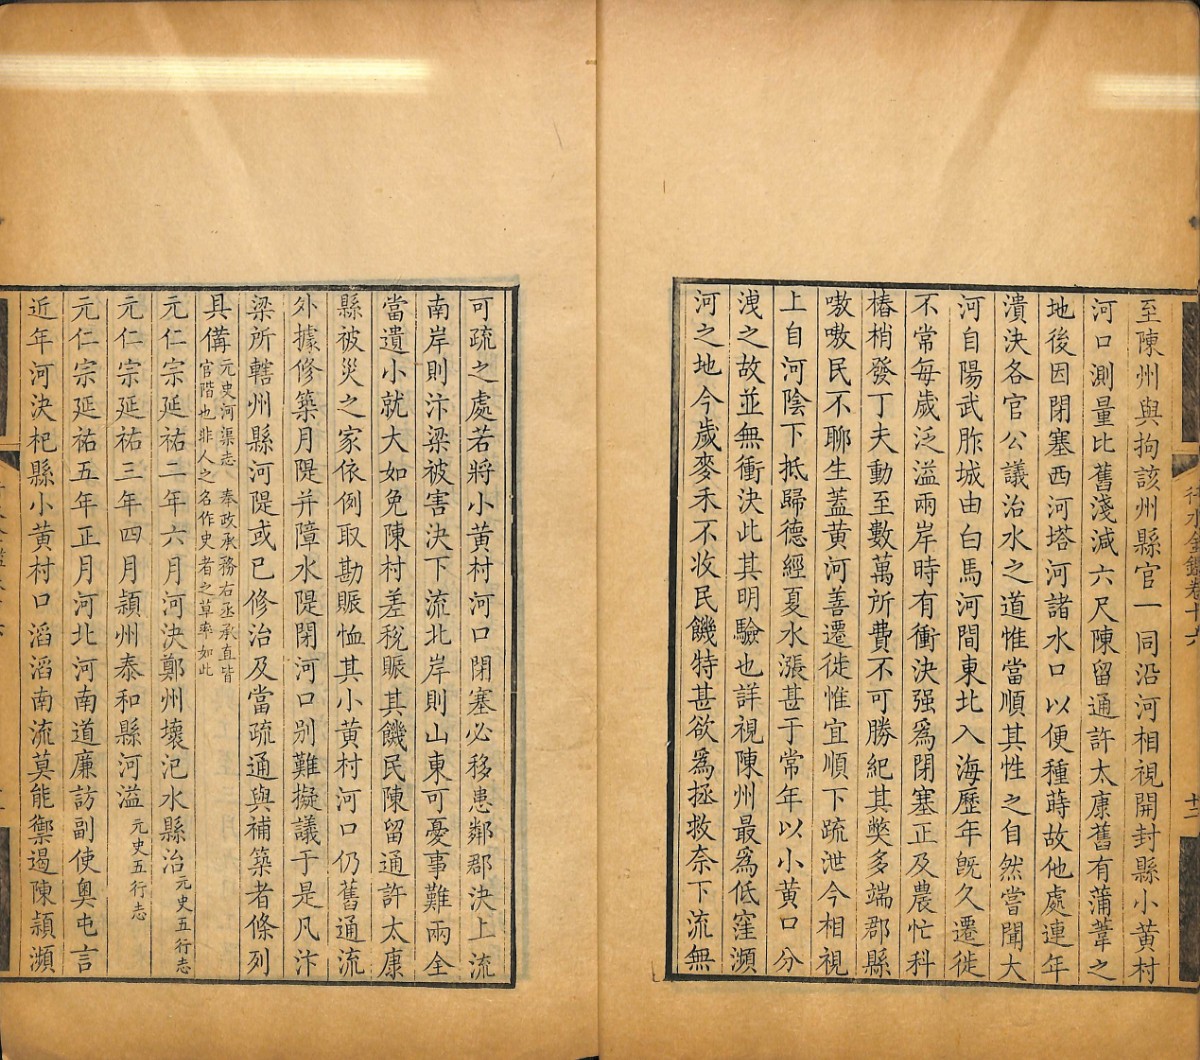 至陳州與拘該州縣官一同沿河相視開封縣小黃村
河口測量比舊淺減六尺陳留通許太康舊有蒲葦之
地後因閉塞西河塔河諸水口以便種蒔故他處連年
潰決各官公議治水之道惟當順其性之自然嘗聞大
河自陽武胙城由白馬河間東北入海歷年旣久遷徙
不常每歲泛溢兩岸時有衝決强爲閉塞正及農忙科
樁梢發丁夫動至數萬所費不可勝紀其獘多端郡縣
嗷嗷民不聊生蓋黃河善遷徙惟宜順下疏泄今相視
上自河陰下抵歸德經夏水漲甚于常年以小黃口分
洩之故並無衝決此其明驗也詳視陳州最爲低窪瀕
河之地今歲麥禾不收民饑特甚欲爲拯救奈下流無
可疏之處若將小黃村河口閉塞必移患鄰郡決上流
南岸則汴梁被害決下流北岸則山東可憂事難兩全
當遺小就大如免陳村差稅賑其饑民陳留通許太康
縣被災之家依例取勘賑恤其小黃村河口仍舊通流
外據修築月隄并障水隄閉河口别難擬議于是凡汴
梁所轄州縣河隄或已修治及當疏通與補築者條列
具備元史河渠志 奉政承務右丞承直皆
官階也非人之名作史者之草率如此
元仁宗延祐二年六月河決鄭州壞汜水縣治元史五行志
元仁宗延祐三年四月潁州泰和縣河溢元史五行志
元仁宗延祐五年正月河北河南道廉訪副使奧屯言
近年河決杞縣小黃村口滔滔南流莫能禦遏陳潁瀕